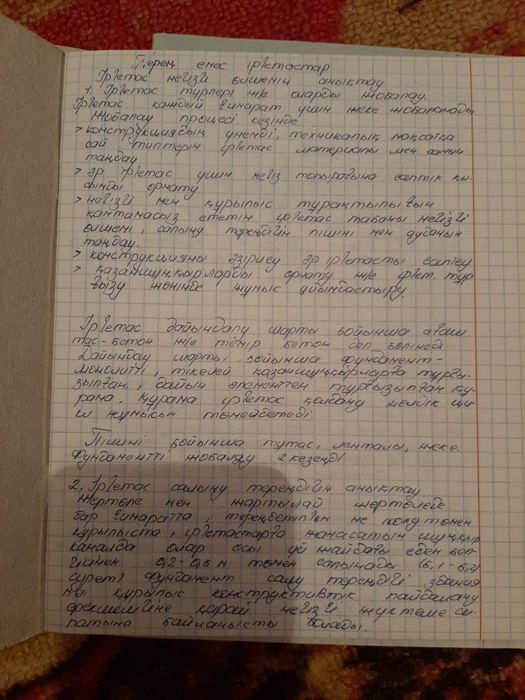 Терең емес іргетастар
Іргетас негізі өлшемін анықтау
1. Іргетас түрлері ж/е оларды жобалау.
Іргетас каждый ғимарат үшін жеке жобаланады
Жобалау процесі кезінде
> конструкциясын үнемді, техникалық мақсатқа
сай типтерін іргетас материалы мен санын
таңдау
> әр іргетас үшін негіз топырағына есептік қы-
сымды орнату
> негізі мен құрылыс тұрақтылығын
қамтамасыз ететін іргетас табаны негізгі
өлшемі, салыну тереңдігін пішіні мен ауданын
таңдау.
> конструкцияны әзірлеу әр іргетасты есептеу
> қазаншұңқырларды орнату ж/е ірget. тұр
ғызу жөнінде жұмыс ұйымдастыру.
Іргетас дайындалу шарты бойынша ағаш
тас-бетон ж/е темір бетон деп бөлінеді
Дайындау шарты бойынша фундамент-
монолитті, тікелей қазаншұңқырларға тұрғы-
зылған, дайын элементтен тұрғызылған құ-
рама, құрама іргетас қолдану
жұмысын төмендетеді.
Пішіні бойынша тұтас, ленталы, жеке.
Фундаментті жобалау 2 кезеңді
2. Іргетас салыну тереңдігін анықтау.
Жертөле мен жартылай жертөледе
бар ғимаратта, тереңдетілген не полу төмен
құрылыста, іргетастарға жанасатын шұңқыр
каналда олар осы үй жайдағы еден бел-
гісінен 0,2-0,5 м төмен салынады (5,1-5,2)
сурет) Фундамент салу тереңдігі здания
ны құрылыс конструктивтік пайдалану
қарай негізгі жүктеме си-
патына байланысты болады.